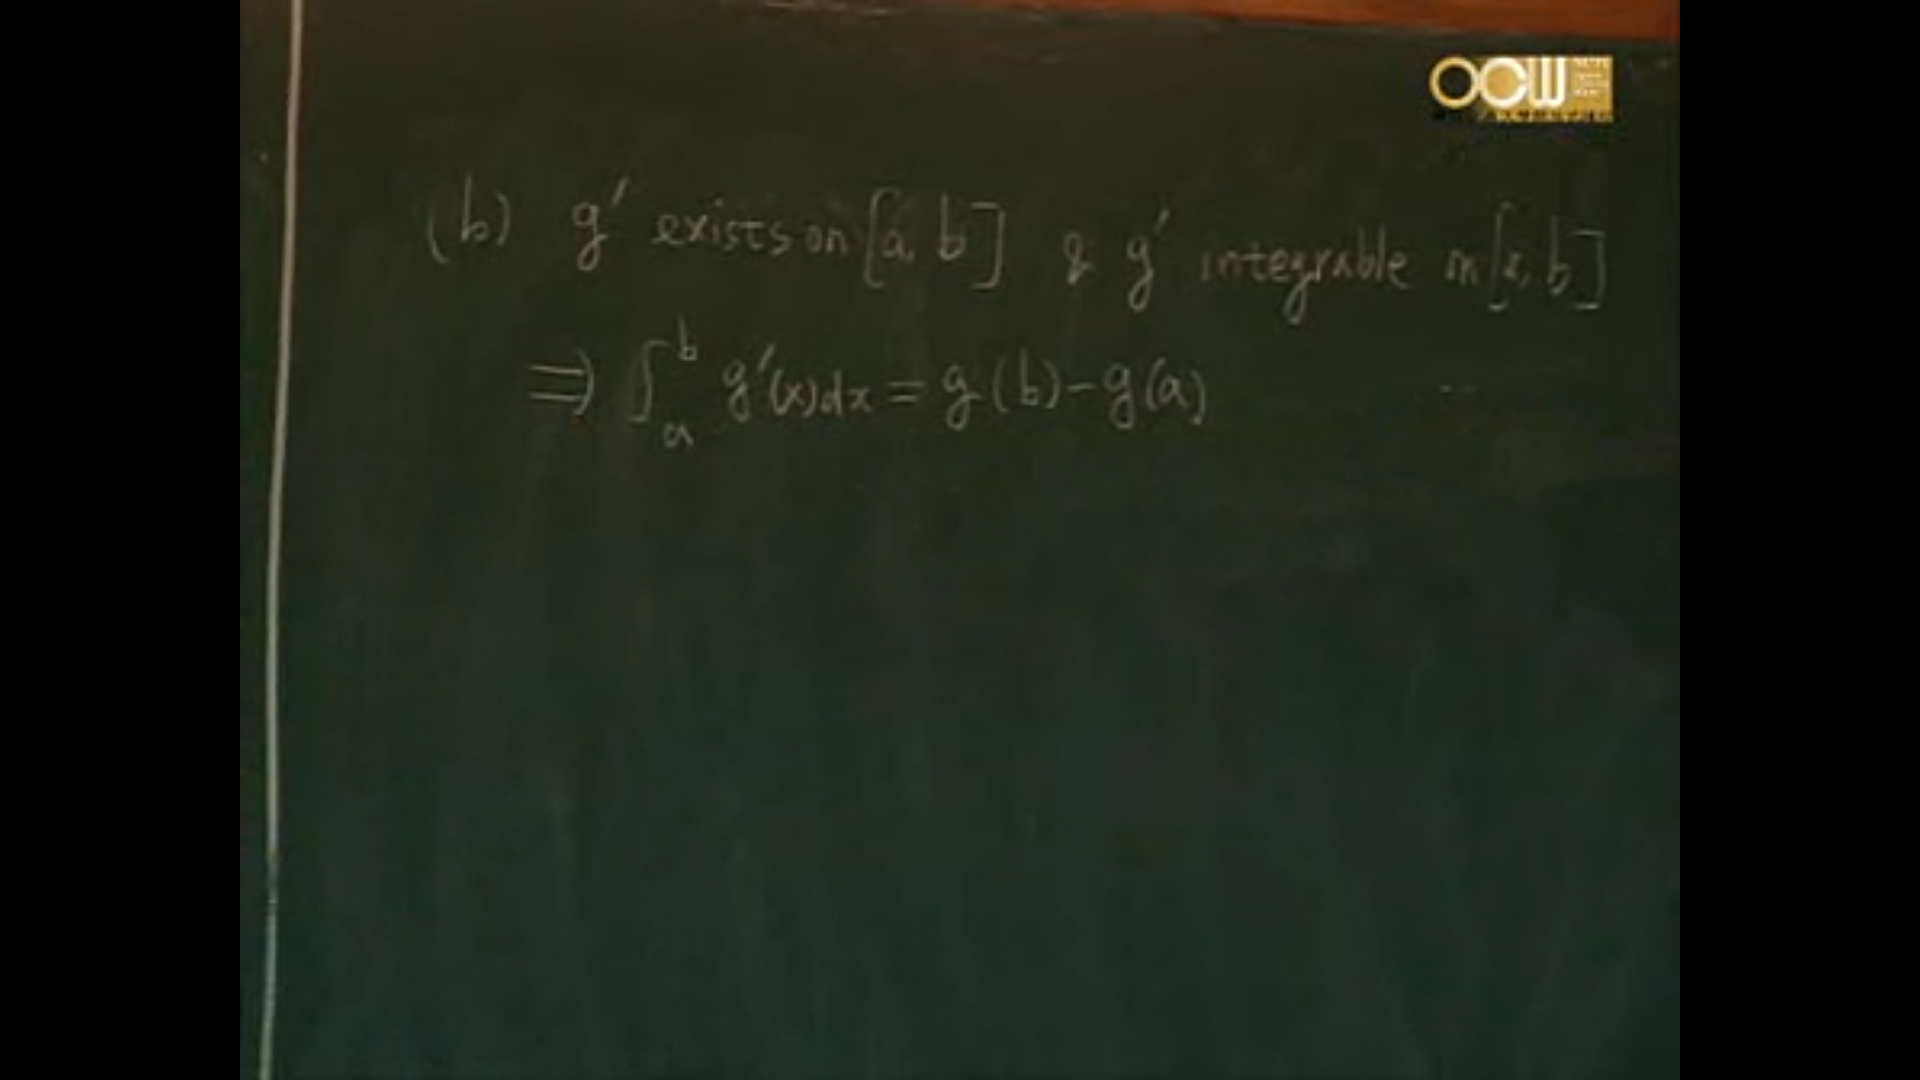 OCW
(b) g' exists on [a, b] & g' integrable on [a, b]
⇒ ∫_a^b g'(x)dx = g(b) - g(a)